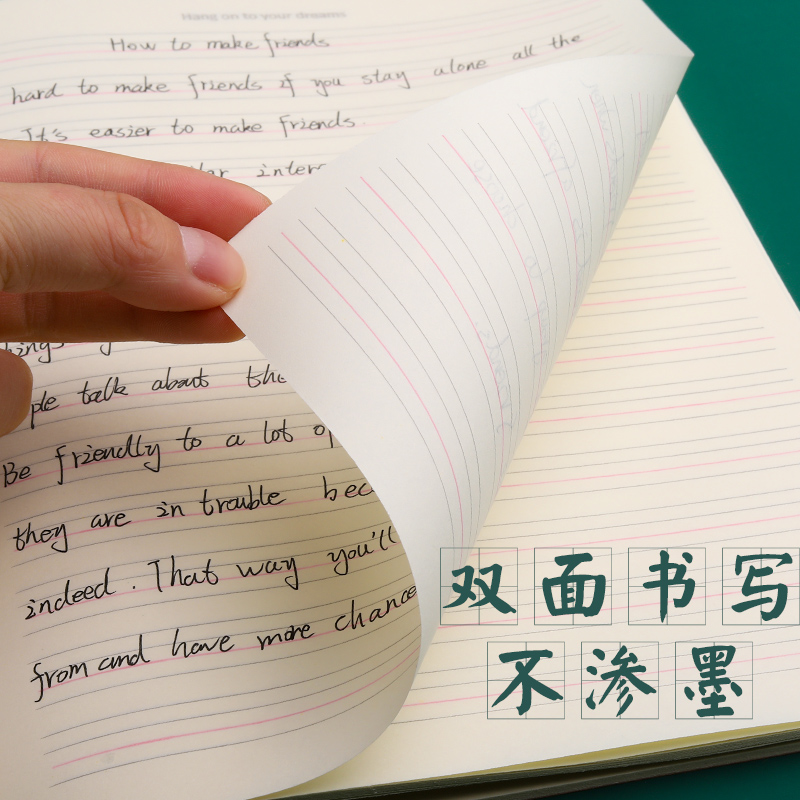 Hang on to your dreams
How to make friends
hard to make friends if you stay alone all the
It's easier to make friends.
talk about
Be friendly to a lot
they are in trouble
indeed. That way you'll
from and have more chance
双面书写
不渗墨